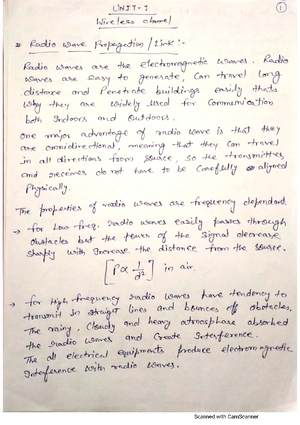 UNIT-I
1
Wireless channel
* Radio wave Propogation / Link :-
Radio waves are the electromagnetic waves. Radio
waves are easy to generate, can travel long
distance and Penetrate buildings easily thats
why they are widely used for communication
both indoors and outdoors.
one major advantage of radio wave is that they
are omnidirectional, meaning that they can travel
in all directions from source, so the transmitter
and receives do not have to be carefully aligned
Physically.
The properties of radio waves are frequency dependent.
→ for Low freq. radio waves easily passes through
obstacles but the power of the signal decrease
sharply with increase the distance from the source.
[P ∝ 1/d²] in air
→ for High frequency radio waves have tendency to
transmit in straight lines and bounces off obstacles.
The rainy, cloudy and heavy atmosphase absorbed
the radio waves and create interference.
The all electrical equipments produce electromagnetic
interference with radio waves.
Scanned with CamScanner